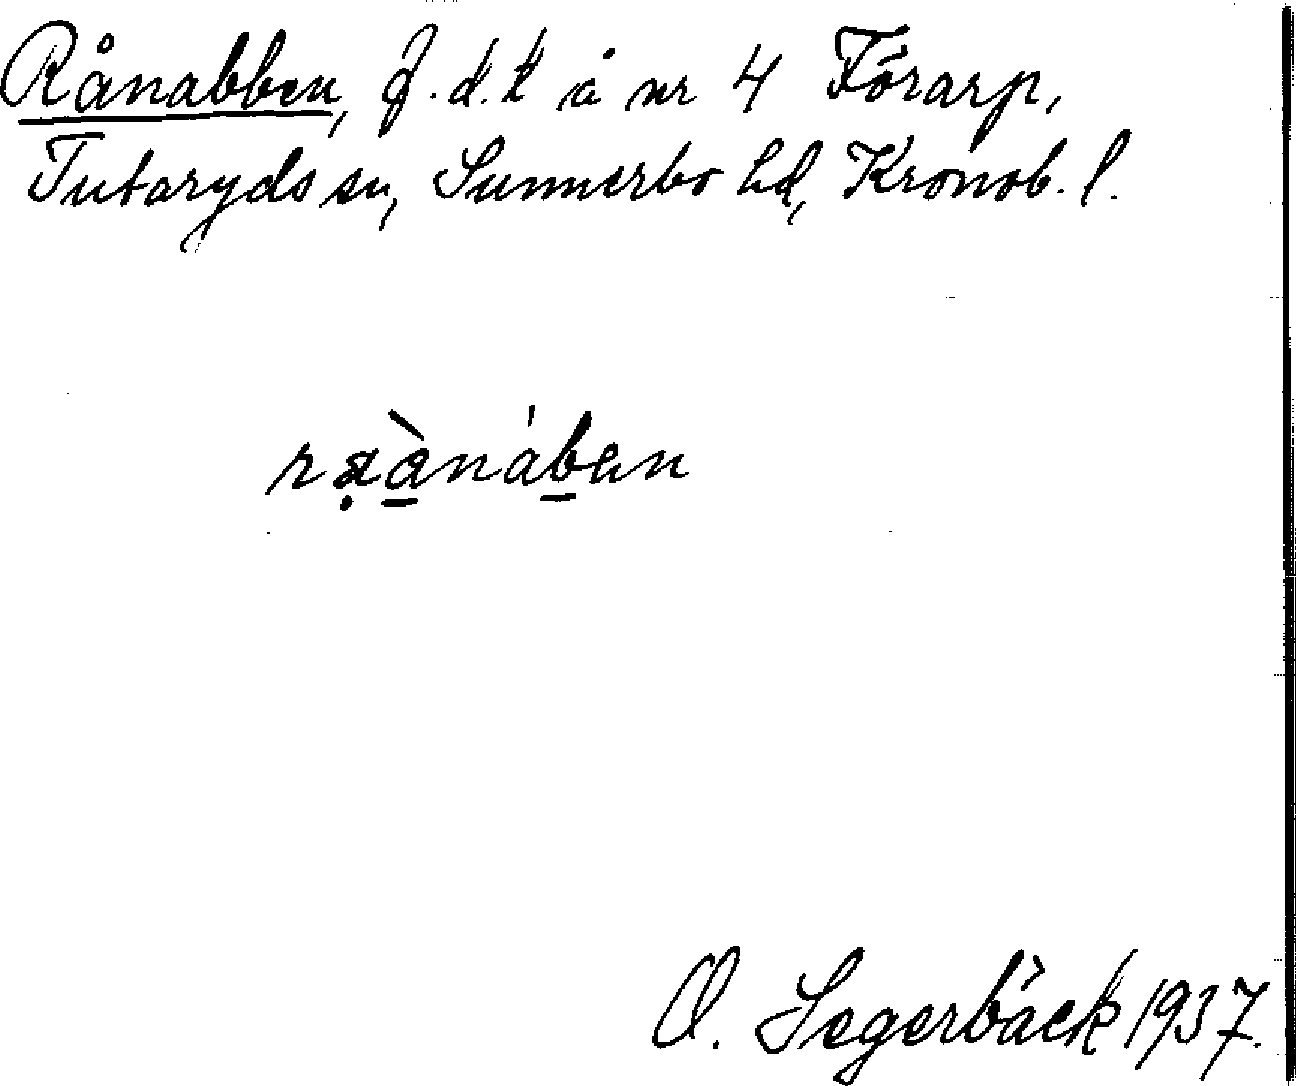 Rånabben, f.d.t å nr 4 Förarp,
Tutaryds sn, Sunnerbo hd, Kronob. l.
O. Segerbäck 1937.